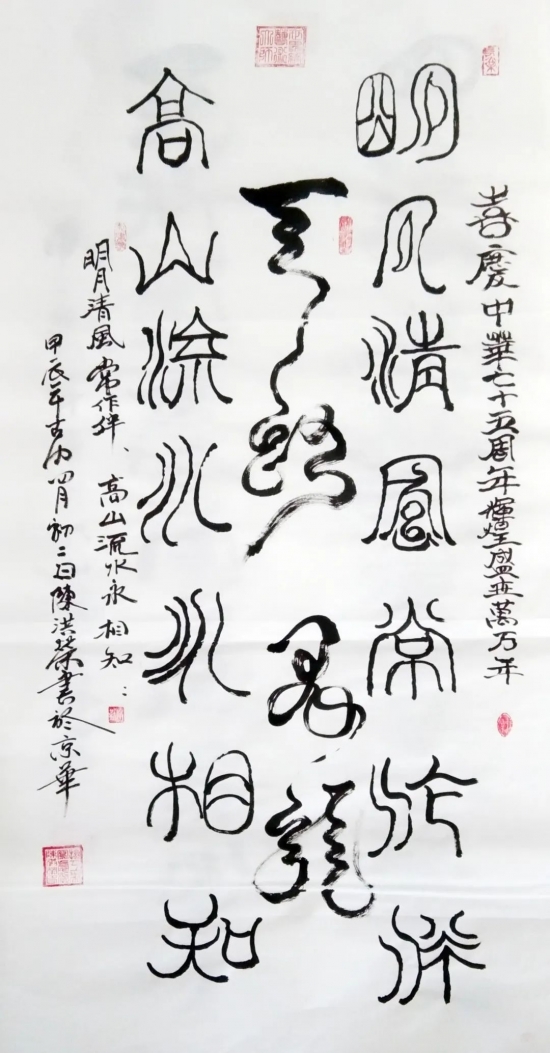 喜慶中華七十五周年輝煌盛世萬万年
明月清風常作伴
龍
高山流水永相知
明月清風常作伴、高山流水永相知
甲辰年古历四月初二日陳洪書於京華